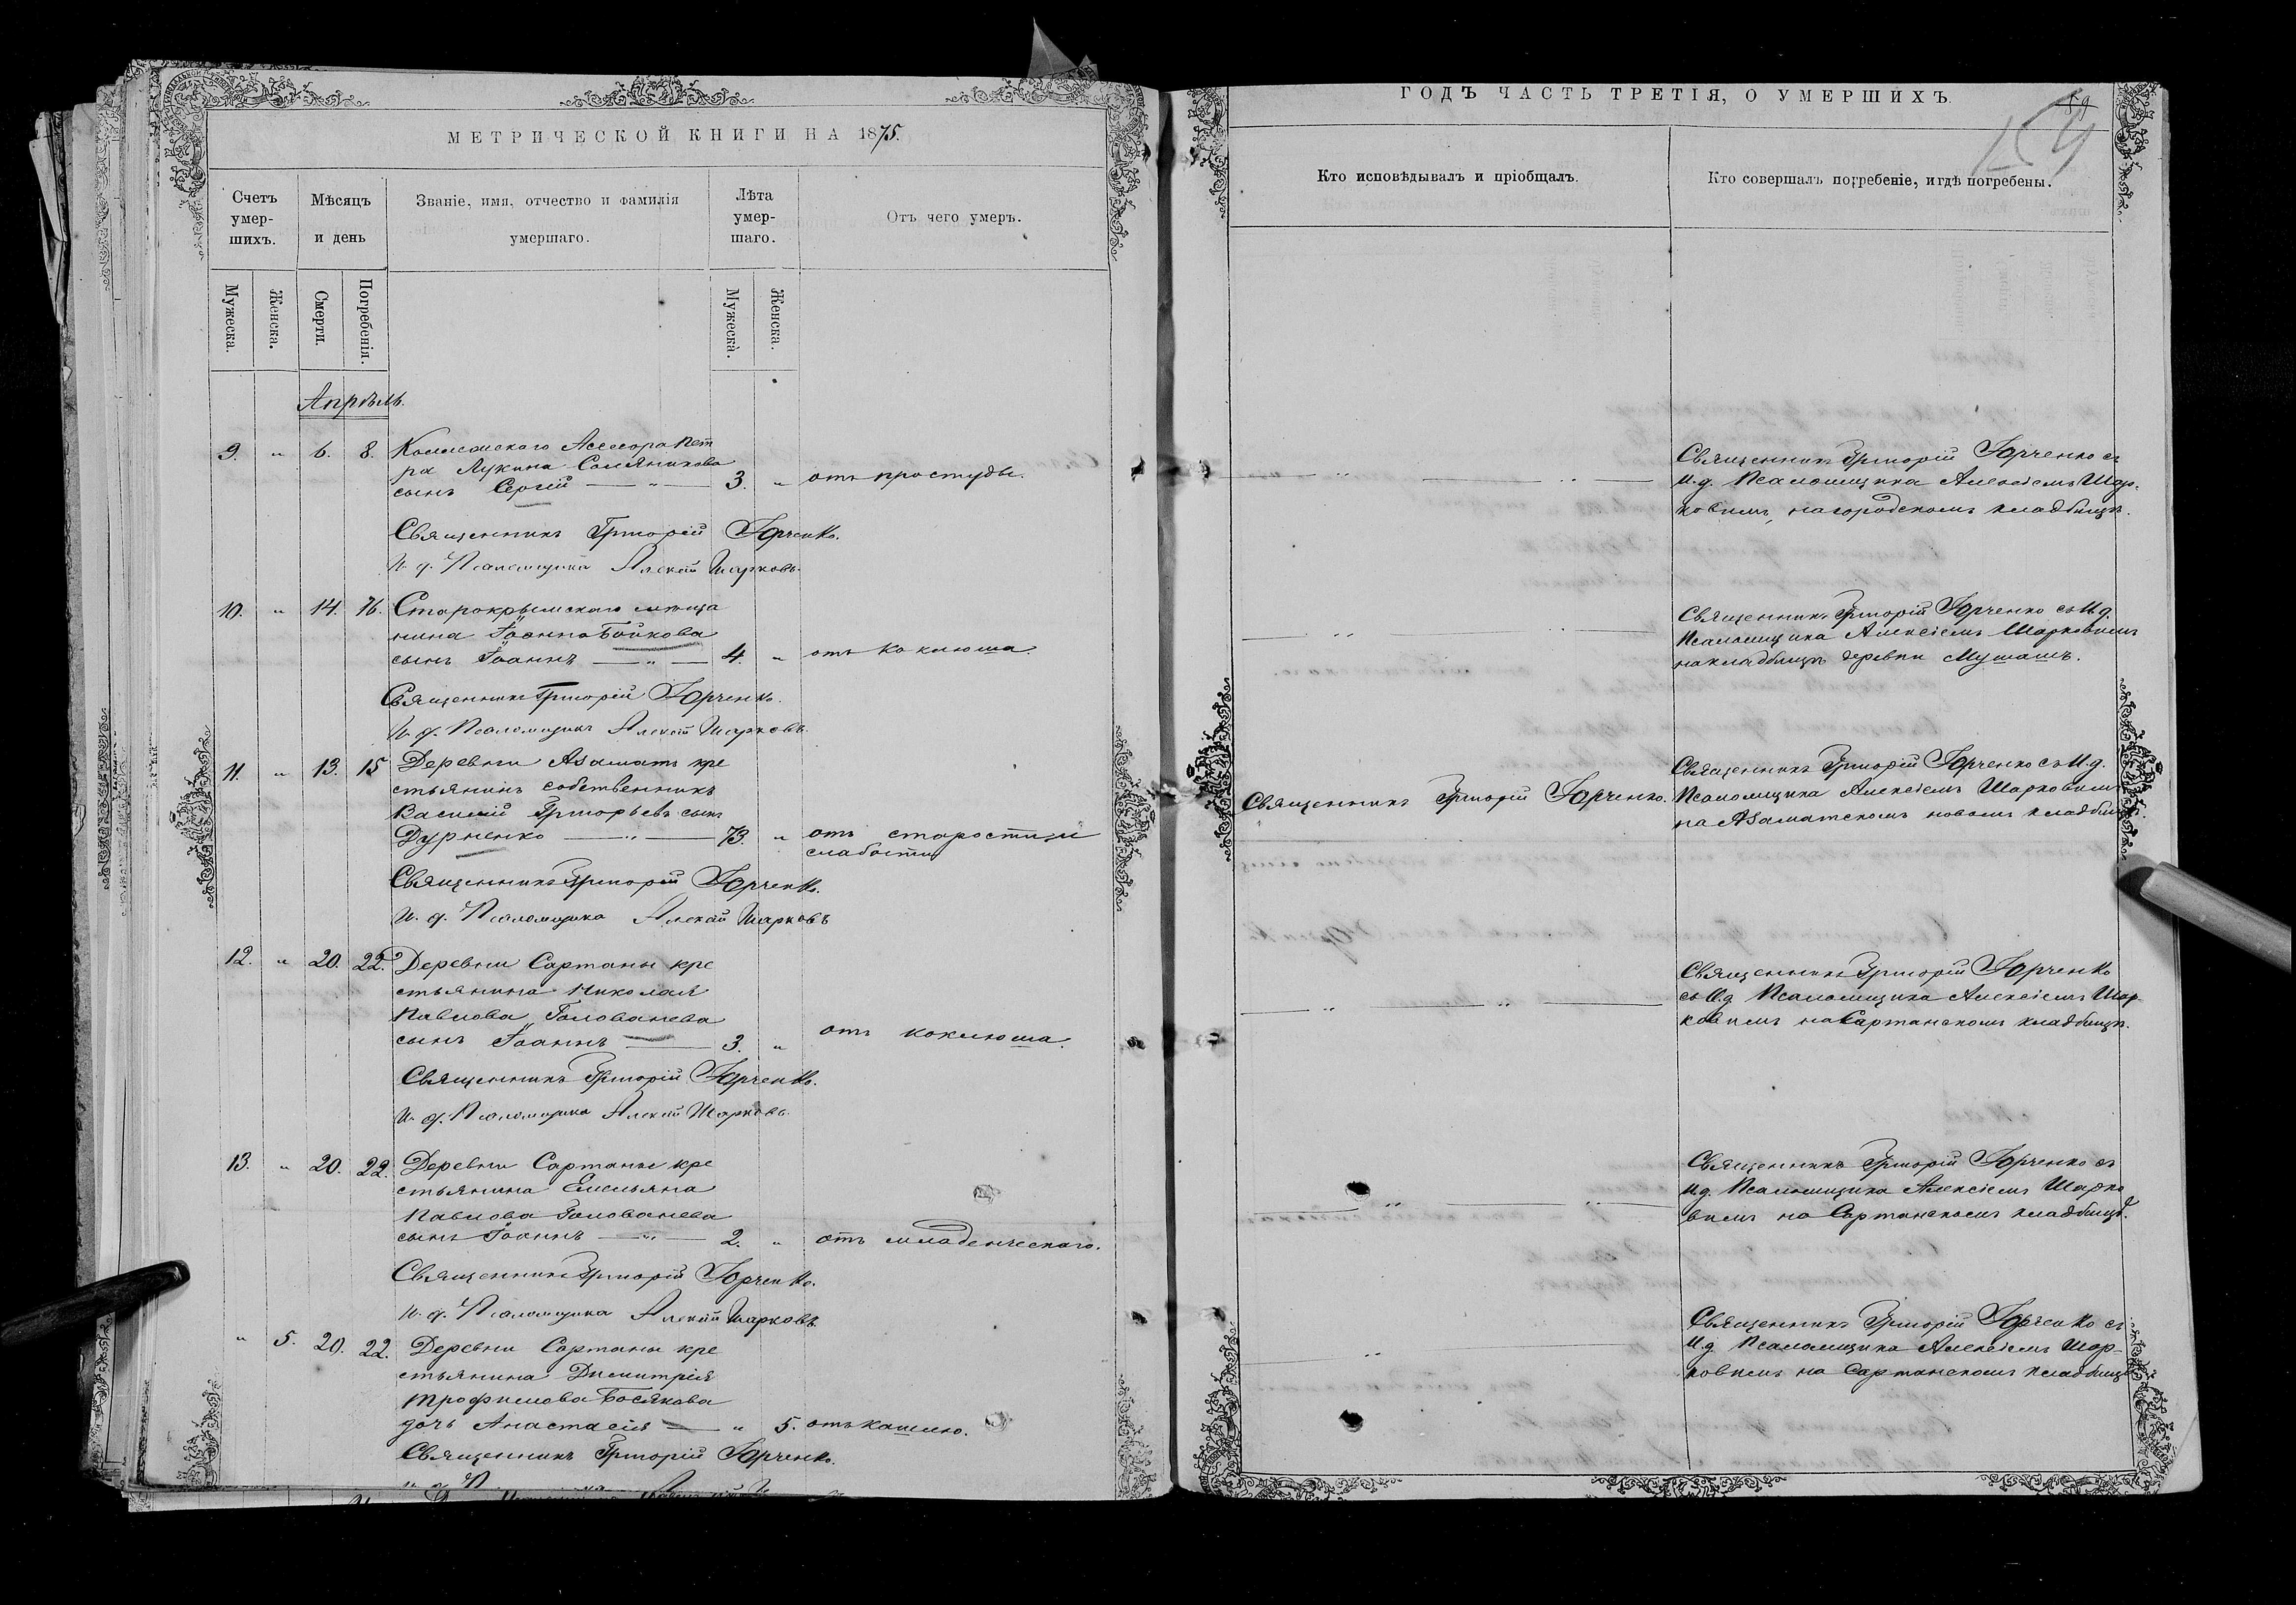 МЕТРИЧЕСКОЙ КНИГИ НА 1875.
Счетъ умер-шихъ.
Мѣсяцъ и день
Званіе, имя, отчество и фамилія умершаго.
Лѣта умер-шаго.
Отъ чего умеръ.
Мужеска.
Женска.
Смерти.
Погребенія.
Мужеска.
Женска.
Апрѣль.
9. " 6. 8. Коллежского Асесора Пет
ра Лукина Соляникова
сынъ Сергій — " — 3. " отъ простуды.
Священникъ Григорій Юрченко.
И. д. Псаломщика Алексій Шарковъ.
10. " 14. 16. Старокрымскаго мѣща
нина Іоанна Бойкова
сынъ Іоаннъ — " — 4. " отъ коклюша.
Священникъ Григорій Юрченко.
И. д. Псаломщика Алексій Шарковъ.
11. " 13. 15 Деревни Азаматъ кре
стьянинъ собственникъ
Василій Григорьевъ сынъ
Дурненко — " — 73. " отъ старости и
слабости
Священникъ Григорій Юрченко.
И. д. Псаломщика Алексій Шарковъ
12. " 20. 22. Деревни Сартаны кре
стьянина Николая
Павлова Голованева
сынъ Іоаннъ — 3. " отъ коклюша.
Священникъ Григорій Юрченко.
И. д. Псаломщика Алексій Шарковъ.
13. " 20. 22. Деревни Сартаны кре
стьянина Емельяна
Павлова Голованева
сынъ Іоаннъ — " — 2. " отъ младенческаго.
Священникъ Григорій Юрченко.
И. д. Псаломщика Алексій Шарковъ.
" 5. 20. 22. Деревни Сартаны кре
стьянина Димитрія
Трофимова Босякова
дочь Анастасія — " 5. отъ кашлю.
Священникъ Григорій Юрченко.
ГОДЪ ЧАСТЬ ТРЕТІЯ, О УМЕРШИХЪ
59
Кто исповѣдывалъ и пріобщалъ.
Кто совершалъ погребеніе, и гдѣ погребены.
Священникъ Григорій Юрченко съ
И. д. Псаломщика Алексіемъ Шар-
ковымъ, на городскомъ кладбищѣ.
Священникъ Григорій Юрченко съ И. д.
Псаломщика Алексіемъ Шарковымъ
на кладбищѣ деревни Мушашъ.
Священникъ Григорій Юрченко.
Священникъ Григорій Юрченко съ И. д.
Псаломщика Алексіемъ Шарковымъ
на Азаматскомъ новомъ кладбищѣ.
Священникъ Григорій Юрченко
съ И. д. Псаломщика Алексіемъ Шар-
ковымъ на Сартанскомъ кладбищѣ.
Священникъ Григорій Юрченко съ
И. д. Псаломщика Алексіемъ Шарко
вымъ на Сартанскомъ кладбищѣ.
Священникъ Григорій Юрченко съ
И. д. Псаломщика Алексіемъ Шар-
ковымъ на Сартанскомъ кладбищѣ